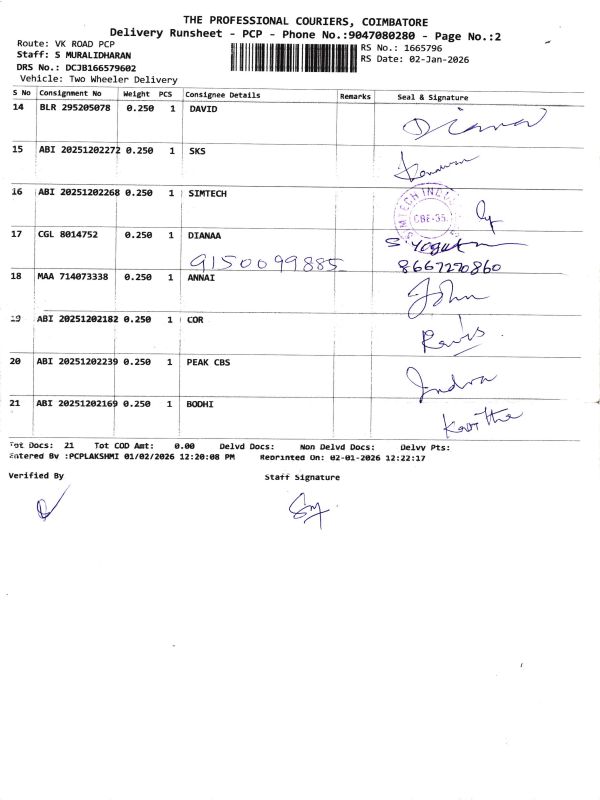 THE PROFESSIONAL COURIERS, COIMBATORE
Delivery Runsheet - PCP - Phone No.:9047080280 - Page No.:2
Route: VK ROAD PCP
Staff: S MURALIDHARAN
DRS No.: DCJB166579602
Vehicle: Two Wheeler Delivery
RS No.: 1665796
RS Date: 02-Jan-2026
S No Consignment No Weight PCS Consignee Details Remarks Seal & Signature
14 BLR 295205078 0.250 1 DAVID
15 ABI 20251202272 0.250 1 SKS
16 ABI 20251202268 0.250 1 SIMTECH CBE-35.
17 CGL 8014752 0.250 1 DIANAA
9150099885 8667270860
18 MAA 714073338 0.250 1 ANNAI John
19 ABI 20251202182 0.250 1 COR
20 ABI 20251202239 0.250 1 PEAK CBS Indra
21 ABI 20251202169 0.250 1 BODHI
Tot Docs: 21 Tot COD Amt: 0.00 Delvd Docs: Non Delvd Docs: Delvy Pts:
Entered By :PCPLAKSHMI 01/02/2026 12:20:08 PM Reprinted On: 02-01-2026 12:22:17
Verified By Staff Signature